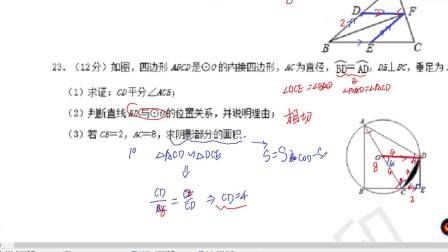 D 2 F
2
B E C
23. (12分) 如图，四边形ABCD是⊙O的内接四边形，AC为直径，BD=AD，DE⊥BC，垂足为
∠DCE=∠BAD
∠BAD=∠ACD
(1) 求证：CD平分∠ACE；
(2) 判断直线ED与⊙O的位置关系，并说明理由； 相切
(3) 若CE=2，AC=8，求阴影部分的面积．
1° △ACD∽△DCE
S=S扇COD-S
⇓
CD/8=CE/CD ⇒ CD=4
A
O 4 D
8 4
B C 2 E